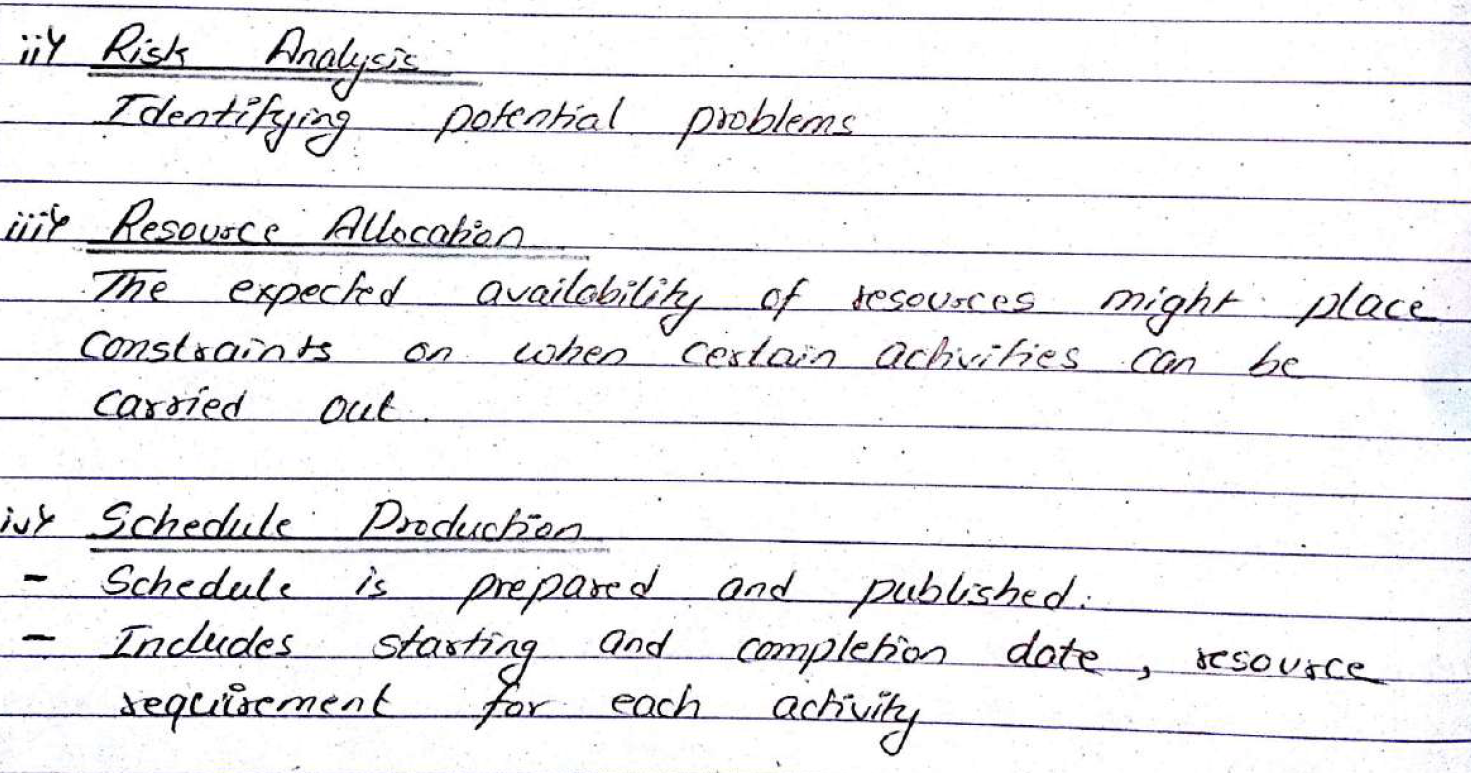 ii) Risk Analysis
Identifying potential problems
iii) Resource Allocation
The expected availability of resources might place
constraints on when certain activities can be
carried out.
iv) Schedule Production
- Schedule is prepared and published.
- Includes starting and completion date, resource
requirement for each activity